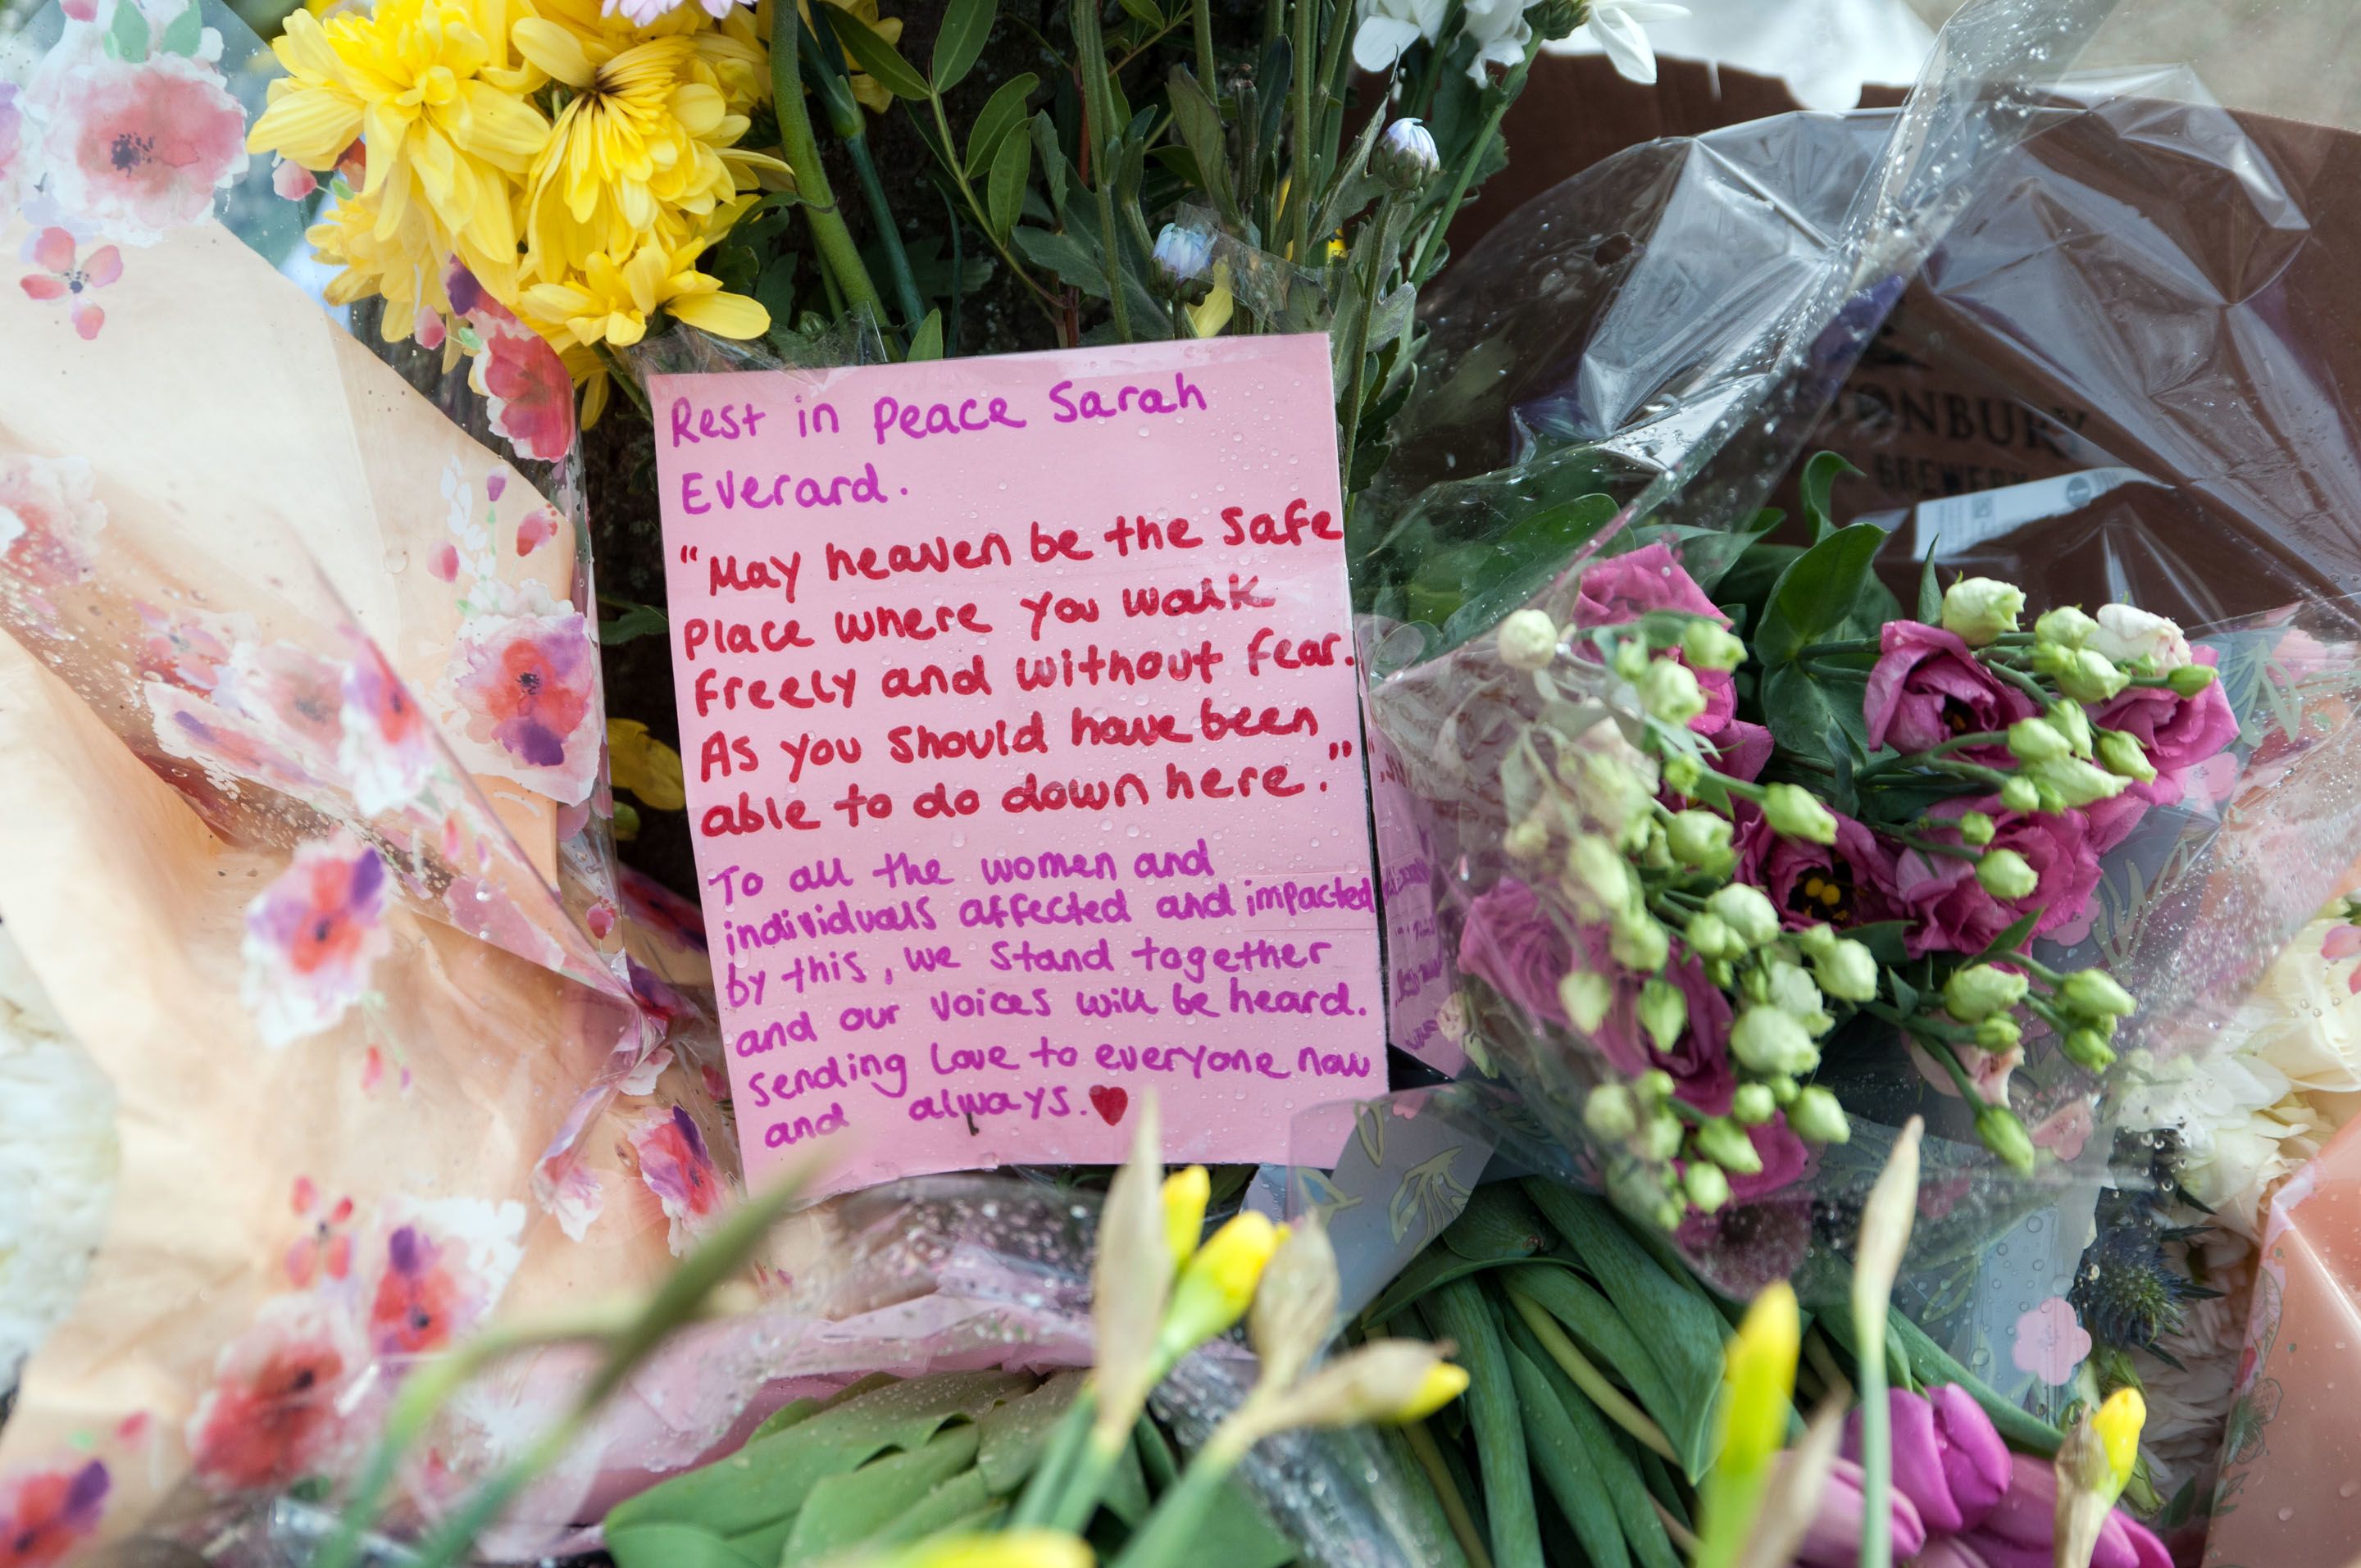 Rest in peace Sarah
Everard.
"May heaven be the safe
place where you walk
freely and without fear.
As you should have been
able to do down here."
To all the women and
individuals affected and impacted
by this, we stand together
and our voices will be heard.
Sending love to everyone now
and always.
BREWERY